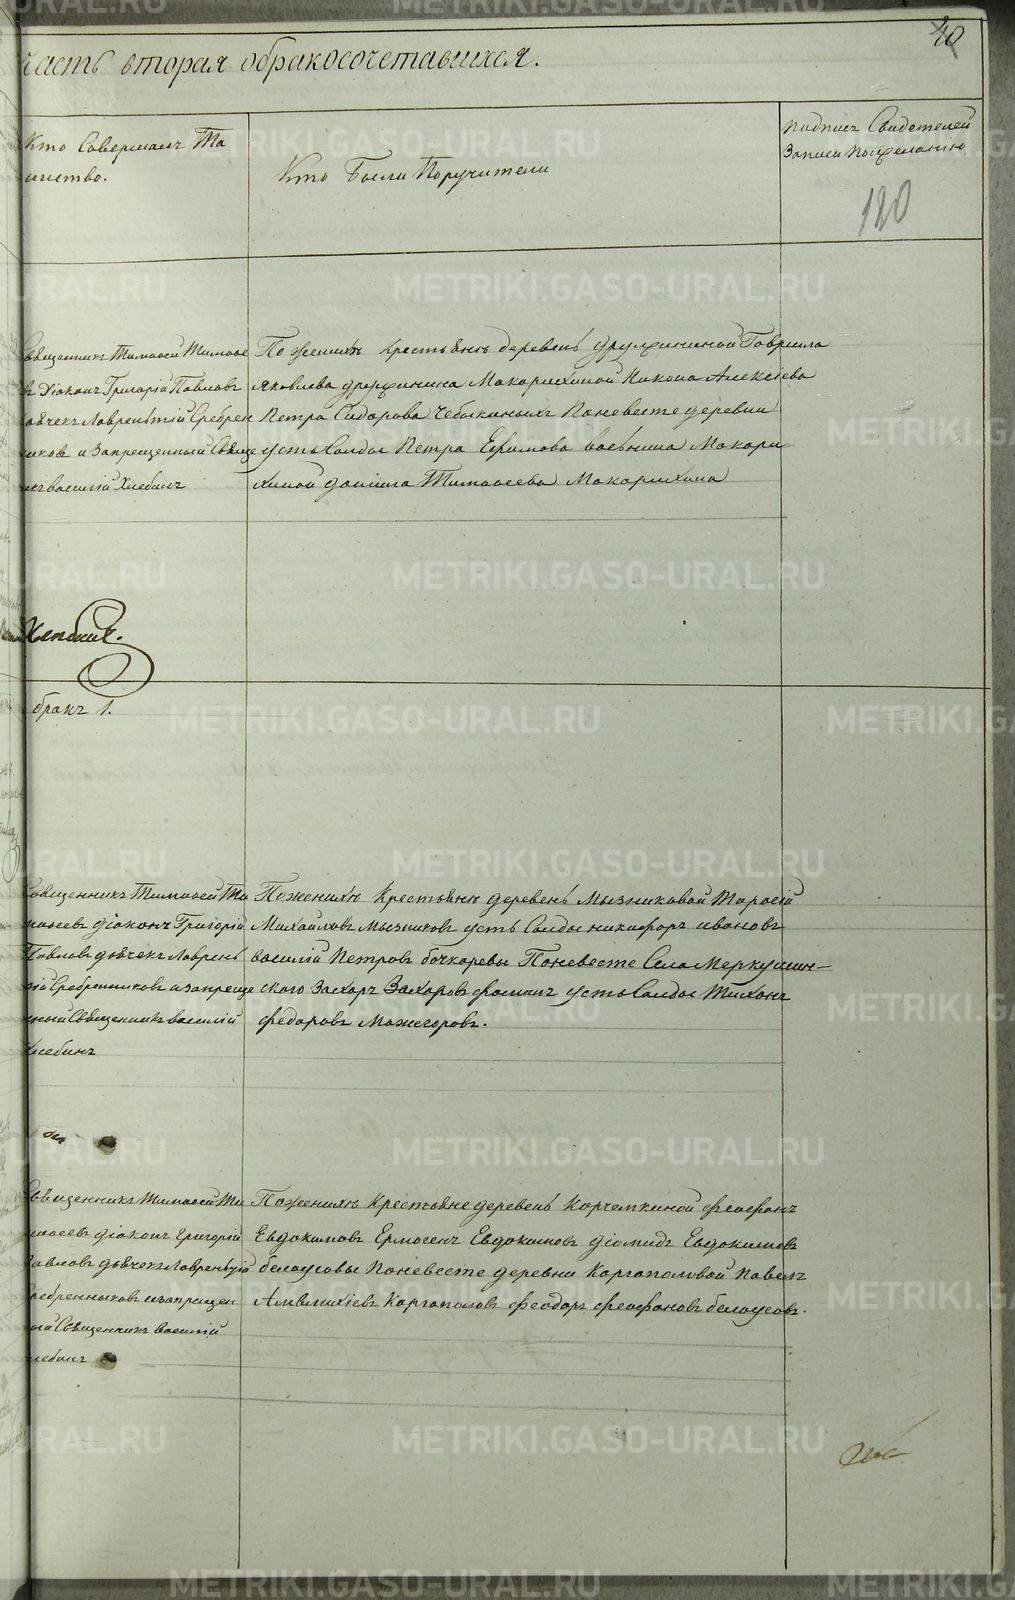 40
часть вторая обракосочетавшихся.
Кто Совершалъ Та
инство.
Кто Были Поручители
подпись Свидетелей
Записи пожеланію
120
Священникъ Тимоѳей Тимоѳе
въ Діаконъ Григорій Павловъ
дьячекъ Лаврентій Сребрен
иковъ и Запрещенный Свяще
никъ василій Хлебинъ
По женихѣ крестьянѣ деревень дружининой Гаврила
яковлева дружинина Макарихиной Никона Алексіева
Петра Сидорова Чебыкиныхъ Поневесте деревни
усть Салды Петра Ефимова воевнина Макари
хиной данила Тимоѳеева Макарихина
Хлебинъ.
бракъ 1.
Священникъ Тимоѳей Ти
моѳеевъ діаконъ Григорій
Павловъ дьячекъ Лаврень
тій Сребренниковъ и запреще
нный Священникъ василій
Хлебинъ
Поженихѣ Крестьянѣ деревень Мызниковой Тарасій
Михайловъ Мызниковъ усть Салды никифоръ ивановъ
василій Петровъ бочкаревы Поневесте Села Меркушин-
ского Захаръ Захаровъ фоминъ усть Салды Тихонъ
федоровъ Мажегоровъ.
Священникъ Тимоѳей Ти
моѳеевъ діаконъ Григорій
Павловъ дьячекъ Лаврентій
Сребренниковъ и запрещен
ный Священникъ василій
Хлебинъ
Поженихѣ Крестьяне деревень Корчемкиной феофонъ
Евдокимовъ Ермогенъ Евдокимовъ діомидъ Евдокимовъ
белоусовы Поневесте деревни Каргаполовой Павелъ
Амвлихіевъ Каргаполовъ феодоръ феофановъ белоусовъ.
METRIKI.GASO-URAL.RU